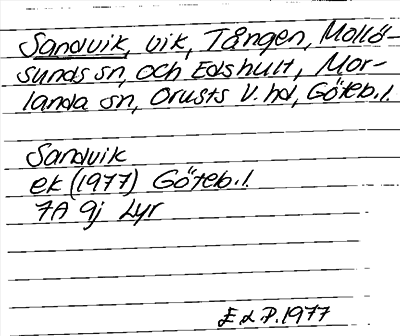 Sandvik, vik, Tången, Mollö-
sunds sn, och Edshult, Mor-
landa sn, Orusts V. hd, Göteb. l.
Sandvik
ek (1977) Göteb. l.
7A 9j Lyr
E L P. 1977